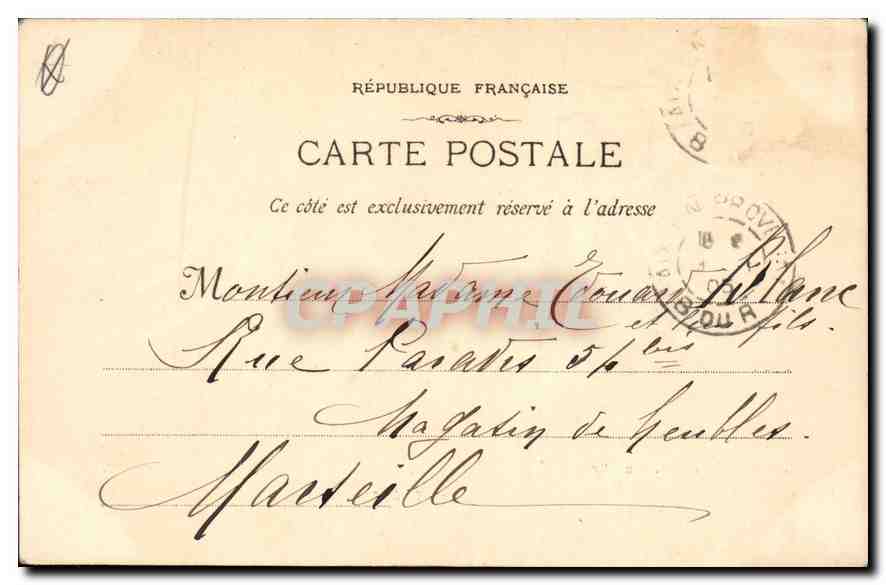 RÉPUBLIQUE FRANÇAISE
CARTE POSTALE
Ce côté est exclusivement réservé à l'adresse
Monsieur Madame Édouard Blanc
et fils.
Rue Paradis bis
Magasin de Meubles.
Marseille
CPAPHIL
PROV
B. DU R